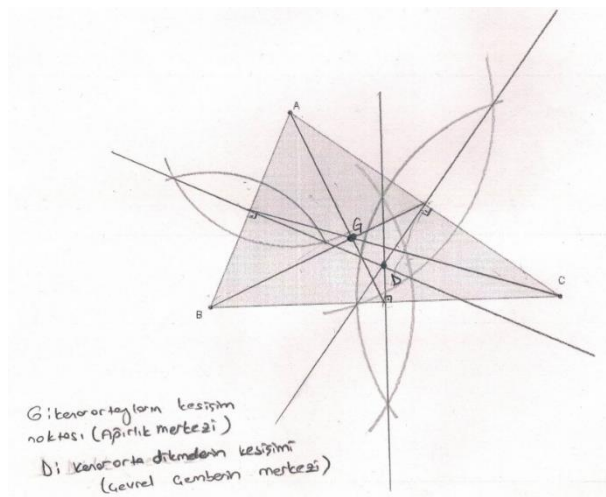 A
G
D
C
B
G: kenarortayların kesişim
noktası (Ağırlık merkezi)
D: kenar orta dikmelerin kesişimi
(Çevrel Çemberin merkezi)